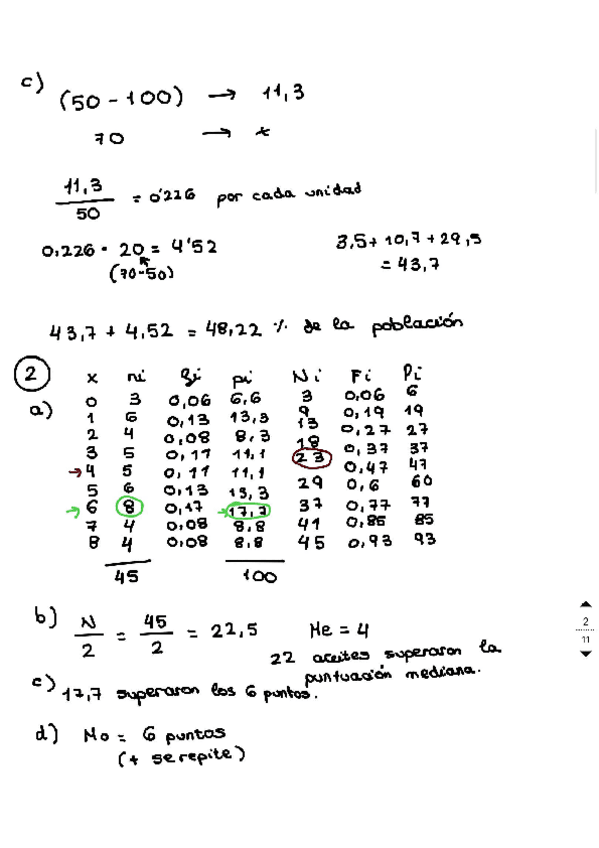 c) (50 - 100) → 11,3
70 → x
11,3 / 50 = 0'226 por cada unidad
0,226 · 20 = 4'52
(70-50)
3,5 + 10,7 + 29,5
= 43,7
43,7 + 4,52 = 48,22 % de la población
2
a)
x ni fi pi Ni Fi Pi
0 3 0,06 6,6 3 0,06 6
1 6 0,13 13,3 9 0,19 19
2 4 0,08 8,3 13 0,27 27
3 5 0,11 11,1 18 0,37 37
→ 4 5 0,11 11,1 23 0,47 47
5 6 0,13 13,3 29 0,6 60
→ 6 8 0,17 → 17,7 37 0,77 77
7 4 0,08 8,8 41 0,85 85
8 4 0,08 8,8 45 0,93 93
45 100
b) N / 2 = 45 / 2 = 22,5 Me = 4
22 aceites superaron la
puntuación mediana.
c) 17,7 superaron los 6 puntos.
d) Mo = 6 puntos
(+ se repite)
2
11